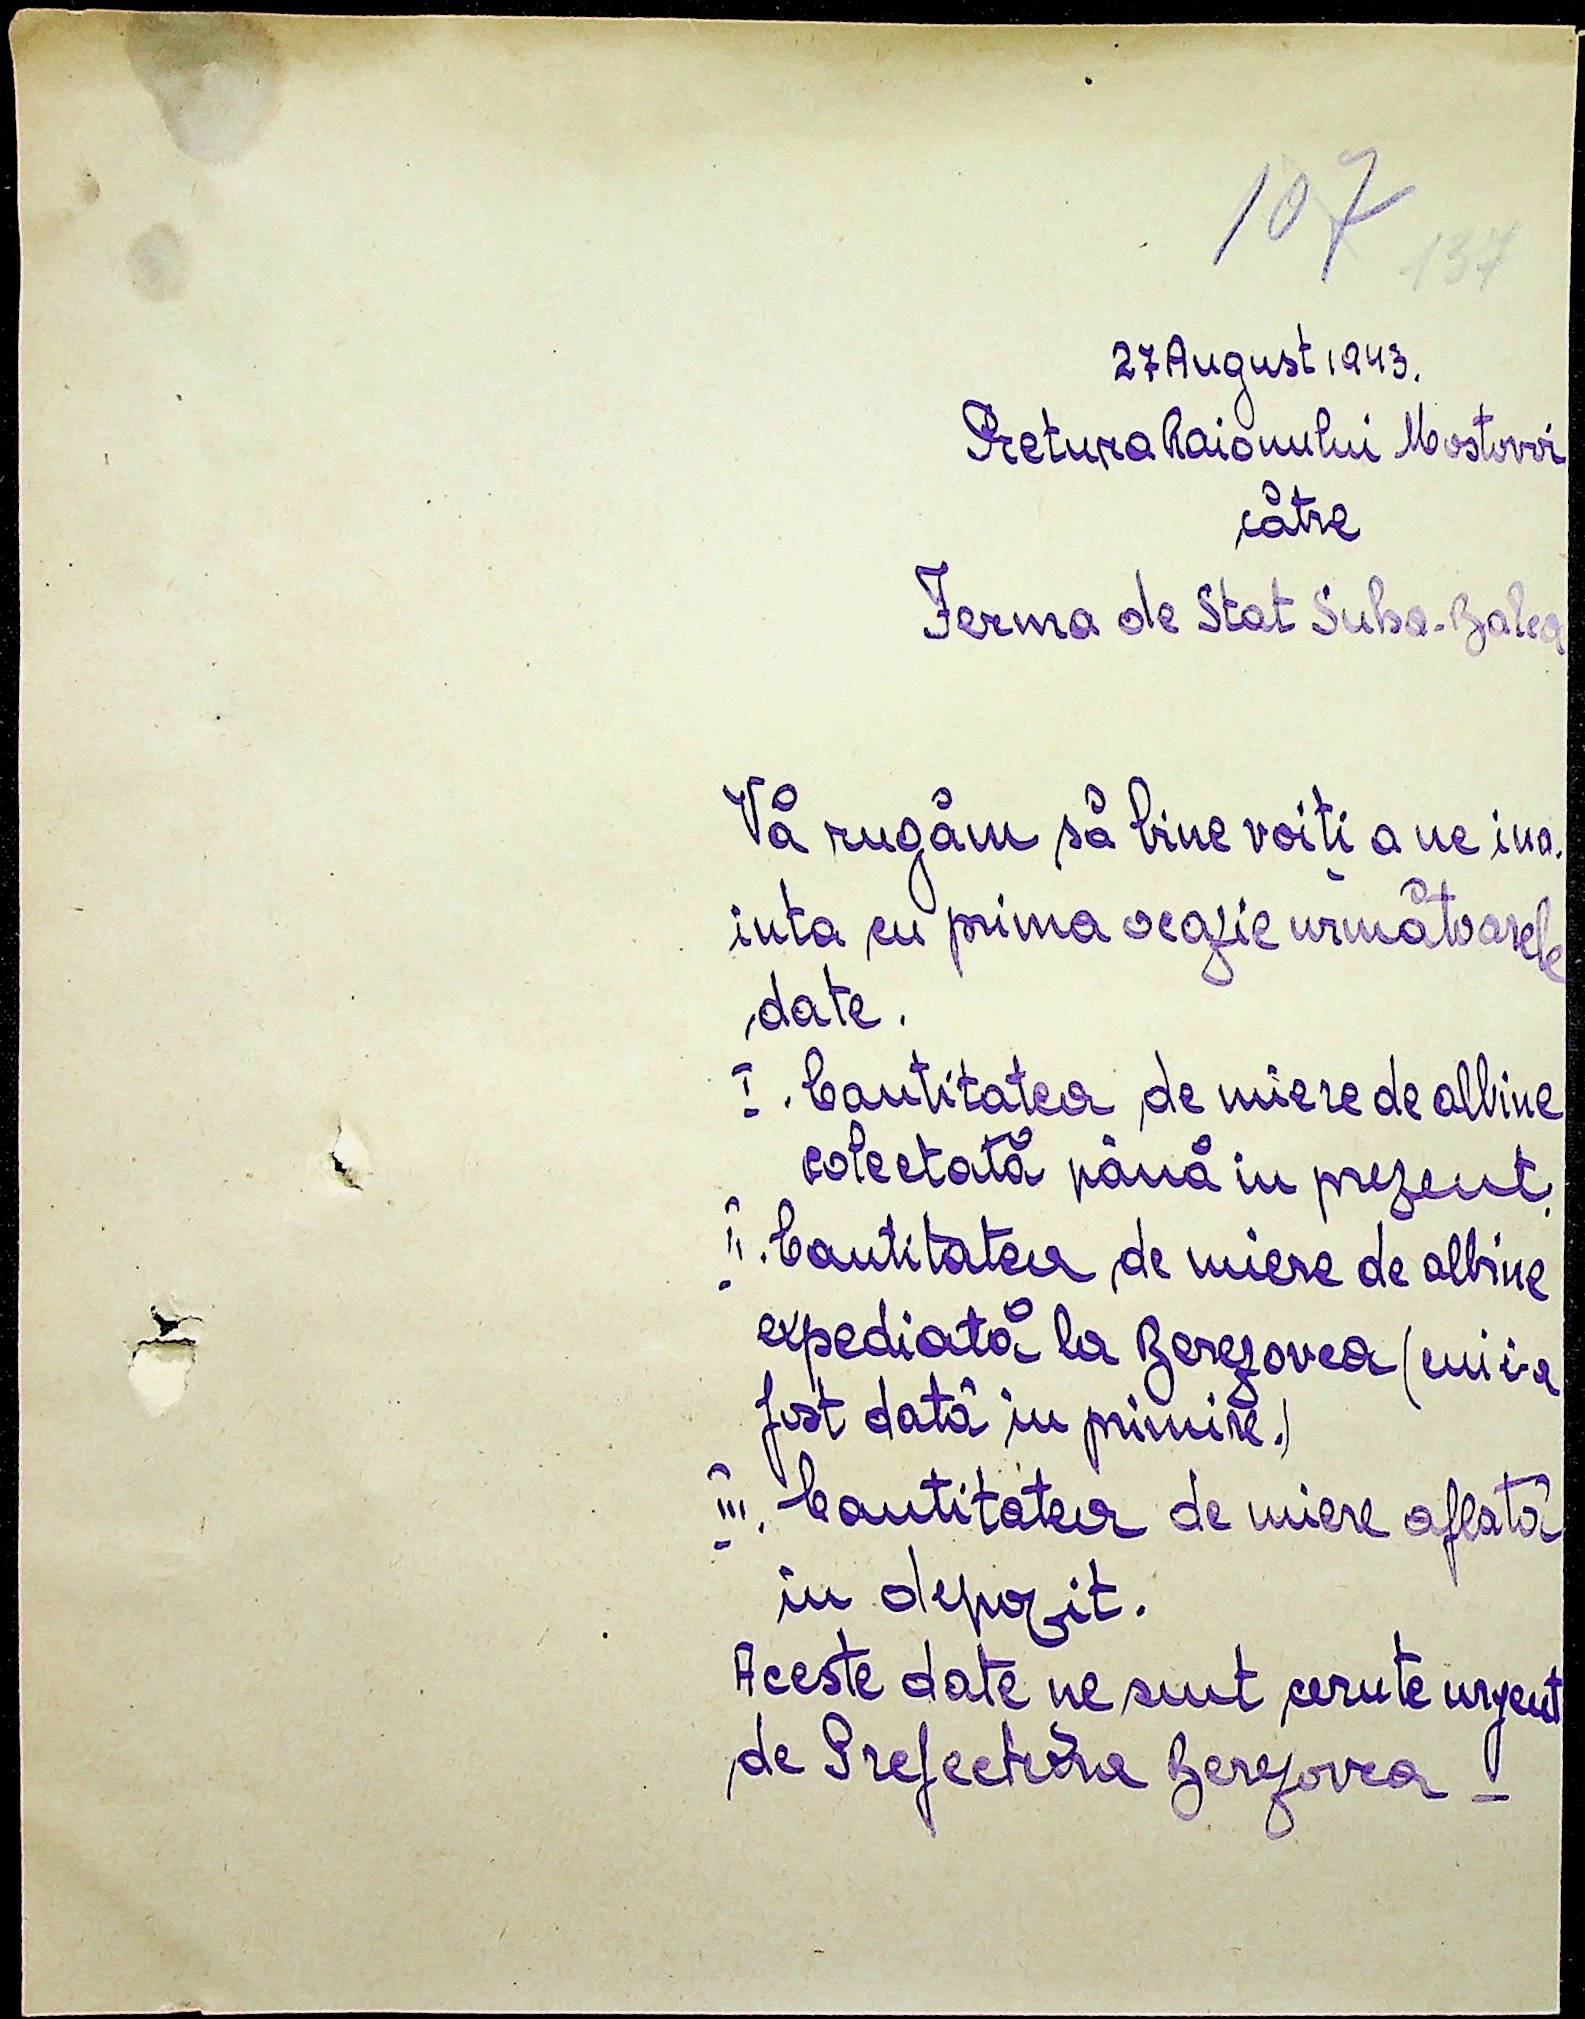 107
137
27 August 1943.
Pretura Raionului Mostovoi
către
Ferma de Stat Suha-Balca
Vă rugăm să bine voiți a ne ina.
inta cu prima ocazie următoarele
date.
I. Cantitatea de miere de albine
colectată până in prezent.
II. Cantitatea de miere de albine
expediată la Berezovca (cui i-a
fost datâ in primire.)
III. Cantitatea de miere aflatâ
in depozit.
Aceste date ne sunt cerute urgent
de Prefectura Berezovca _